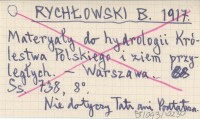 RYCHŁOWSKI B. 1917.
Materyały do hydrologii Kró-
lestwa Polskiego i ziem przy-
ległych. – Warszawa.
Ss 738, 8°.
Nie dotyczy Tatr ani Podtatrza.